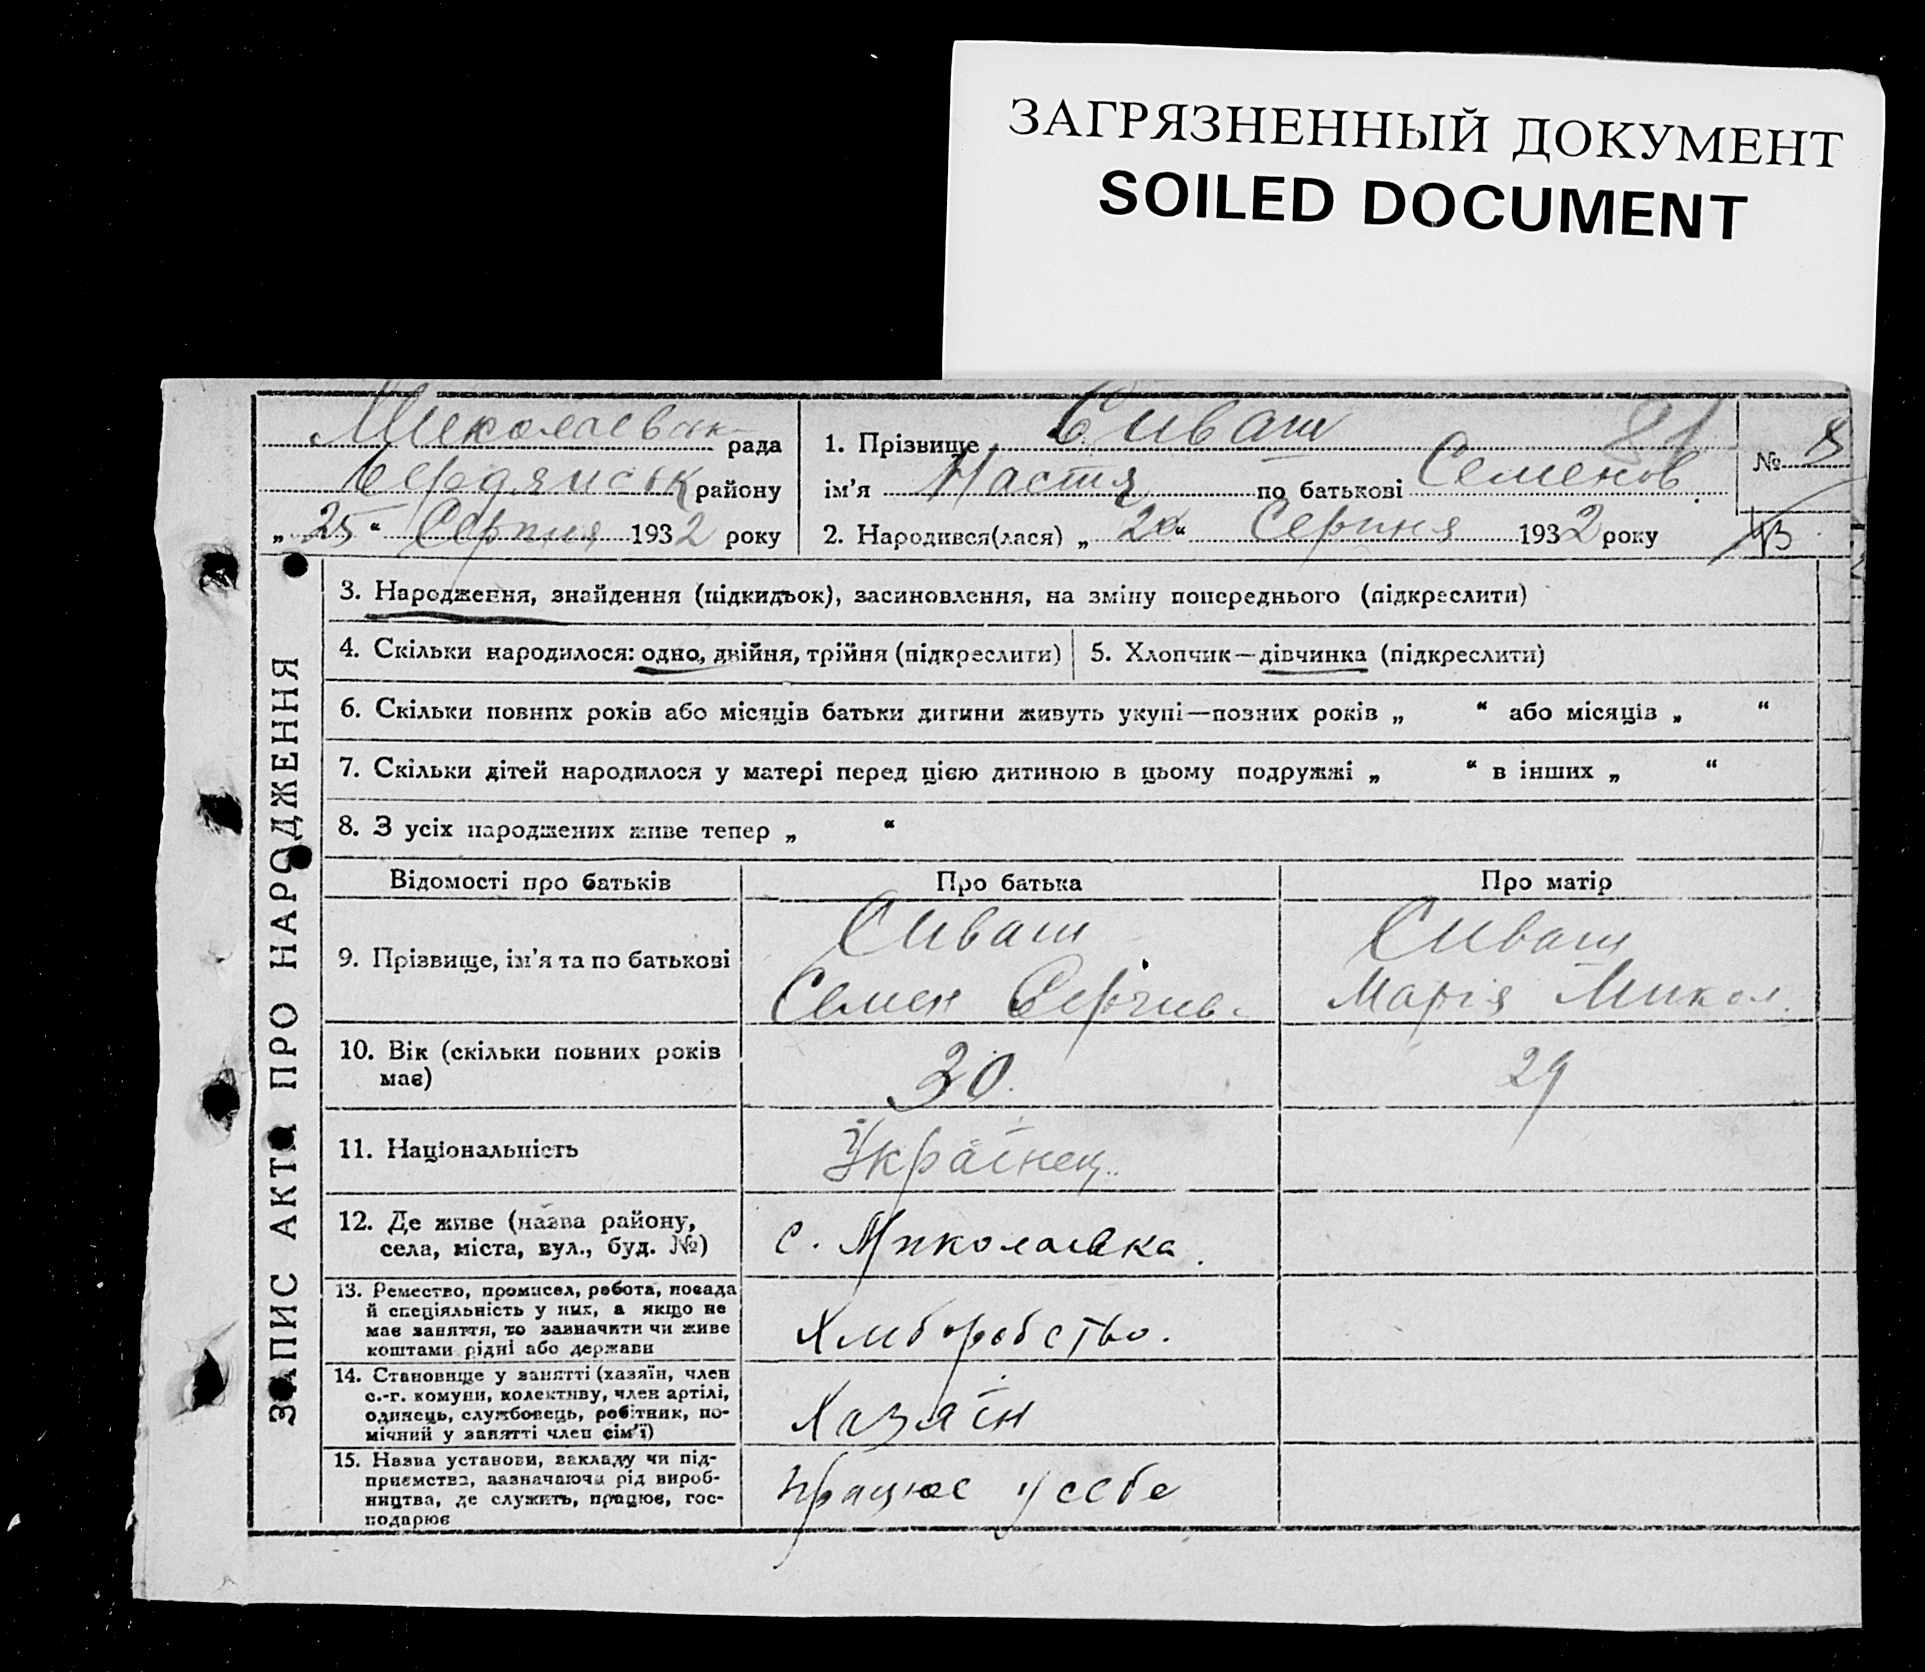 ЗАГРЯЗНЕННЫЙ ДОКУМЕНТ
SOILED DOCUMENT
Миколаевськ рада
Бердянськ району
„ 25 “ Серпня 1932 року
1. Прізвище Сиваш 81
ім’я Настя по батькові Семенов.
2. Народився(лася) „ “ Серпня 1932 року
№ 8
ЗАПИС АКТА ПРО НАРОДЖЕННЯ
3. Народження, знайдення (підкидьок), засиновлення, на зміну попереднього (підкреслити)
4. Скільки народилося: одно, двійня, трійня (підкреслити)
5. Хлопчик—дівчинка (підкреслити)
6. Скільки повних років або місяців батьки дитини живуть укупі—повних років „ “ або місяців „ “
7. Скільки дітей народилося у матері перед цією дитиною в цьому подружжі „ “ в інших „ “
8. З усіх народжених живе тепер „ “
Відомості про батьків Про батька Про матір
9. Прізвище, ім’я та по батькові
Сиваш
Семен Сергиев.
Сиваш
Марія Микол.
10. Вік (скільки повних років
має)
30.
29
11. Національність
Українец.
12. Де живе (назва району,
села, міста, вул., буд. №)
с. Миколаівка.
13. Ремество, промисел, робота, посада
й спеціяльність у них, а якщо не
має заняття, то зазначити чи живе
коштами рідні або держави
Хлиборобство.
14. Становище у занятті (хазяїн, член
с.-г. комуни, колективу, член артілі,
одинець, службовець, робітник, по-
мічний у занятті член сім’ї)
Хазяїн
15. Назва установи, закладу чи під-
приємства, зазначаючи рід вироб-
ництва, де служить, працює, гос-
подарює
працює у себе